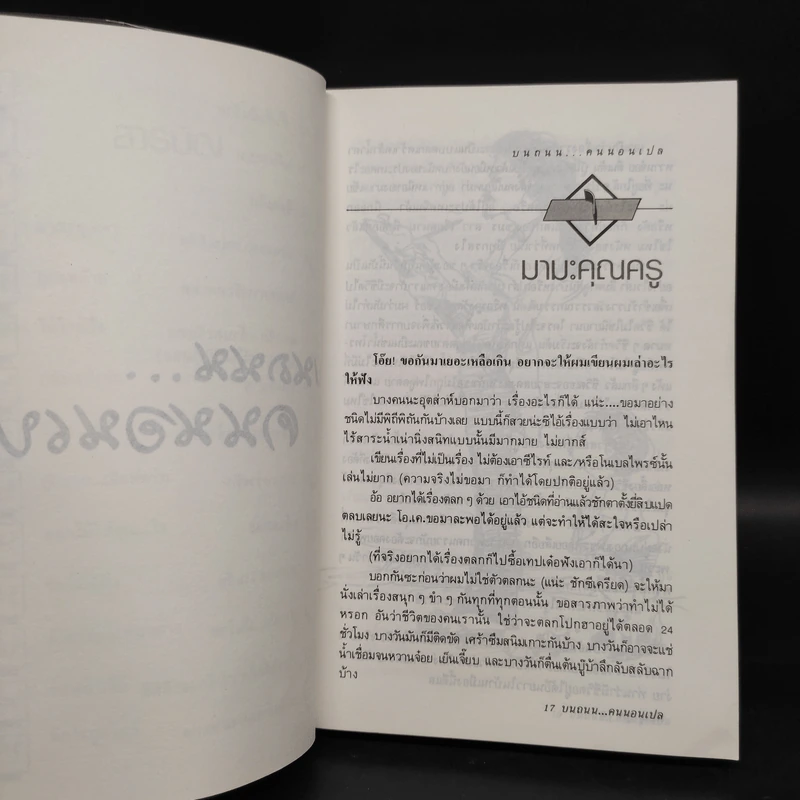 บนถนน...คนนอนเปล
๑
มามะคุณครู
โอ๊ย! ขอกันมาเยอะเหลือเกิน อยากจะให้ผมเขียนผมเล่าอะไร
ให้ฟัง
บางคนนะอุตส่าห์บอกมาว่า เรื่องอะไรก็ได้ แน่ะ....ขอมาอย่าง
ชนิดไม่มีพิถีพิถันกันบ้างเลย แบบนี้ก็สวยน่ะซิไอ้เรื่องแบบว่า ไม่เอาไหน
ไร้สาระน้ำเน่านิ่งสนิทแบบนั้นมีมากมาย ไม่ยากส์
เขียนเรื่องที่ไม่เป็นเรื่อง ไม่ต้องเอาซีไรท์ และ/หรือโนเบลไพรซ์นั้น
เล่นไม่ยาก (ความจริงไม่ขอมา ก็ทำได้โดยปกติอยู่แล้ว)
อ้อ อยากได้เรื่องตลก ๆ ด้วย เอาไอ้ชนิดที่อ่านแล้วชักตาตั้งยี่สิบแปด
ตลบเลยนะ โอ.เค.ขอมาละพอได้อยู่แล้ว แต่จะทำให้ได้สะใจหรือเปล่า
ไม่รู้
(ที่จริงอยากได้เรื่องตลกก็ไปซื้อเทปเด๋อฟังเอาก็ได้นา)
บอกกันซะก่อนว่าผมไม่ใช่ตัวตลกนะ (แน่ะ ชักซีเครียด) จะให้มา
นั่งเล่าเรื่องสนุก ๆ ขำ ๆ กันทุกที่ทุกตอนนั้น ขอสารภาพว่าทำไม่ได้
หรอก อันว่าชีวิตของคนเรานั้น ใช่ว่าจะตลกโปกฮาอยู่ได้ตลอด 24
ชั่วโมง บางวันมันก็มีติดขัด เศร้าซึมสนิมเกาะกันบ้าง บางวันก็อาจจะแช่
น้ำเชื่อมจนหวานจ๋อย เย็นเจี๊ยบ และบางวันก็ตื่นเต้นบู๊บ้าลึกลับสลับฉาก
บ้าง
17 บนถนน...คนนอนเปล